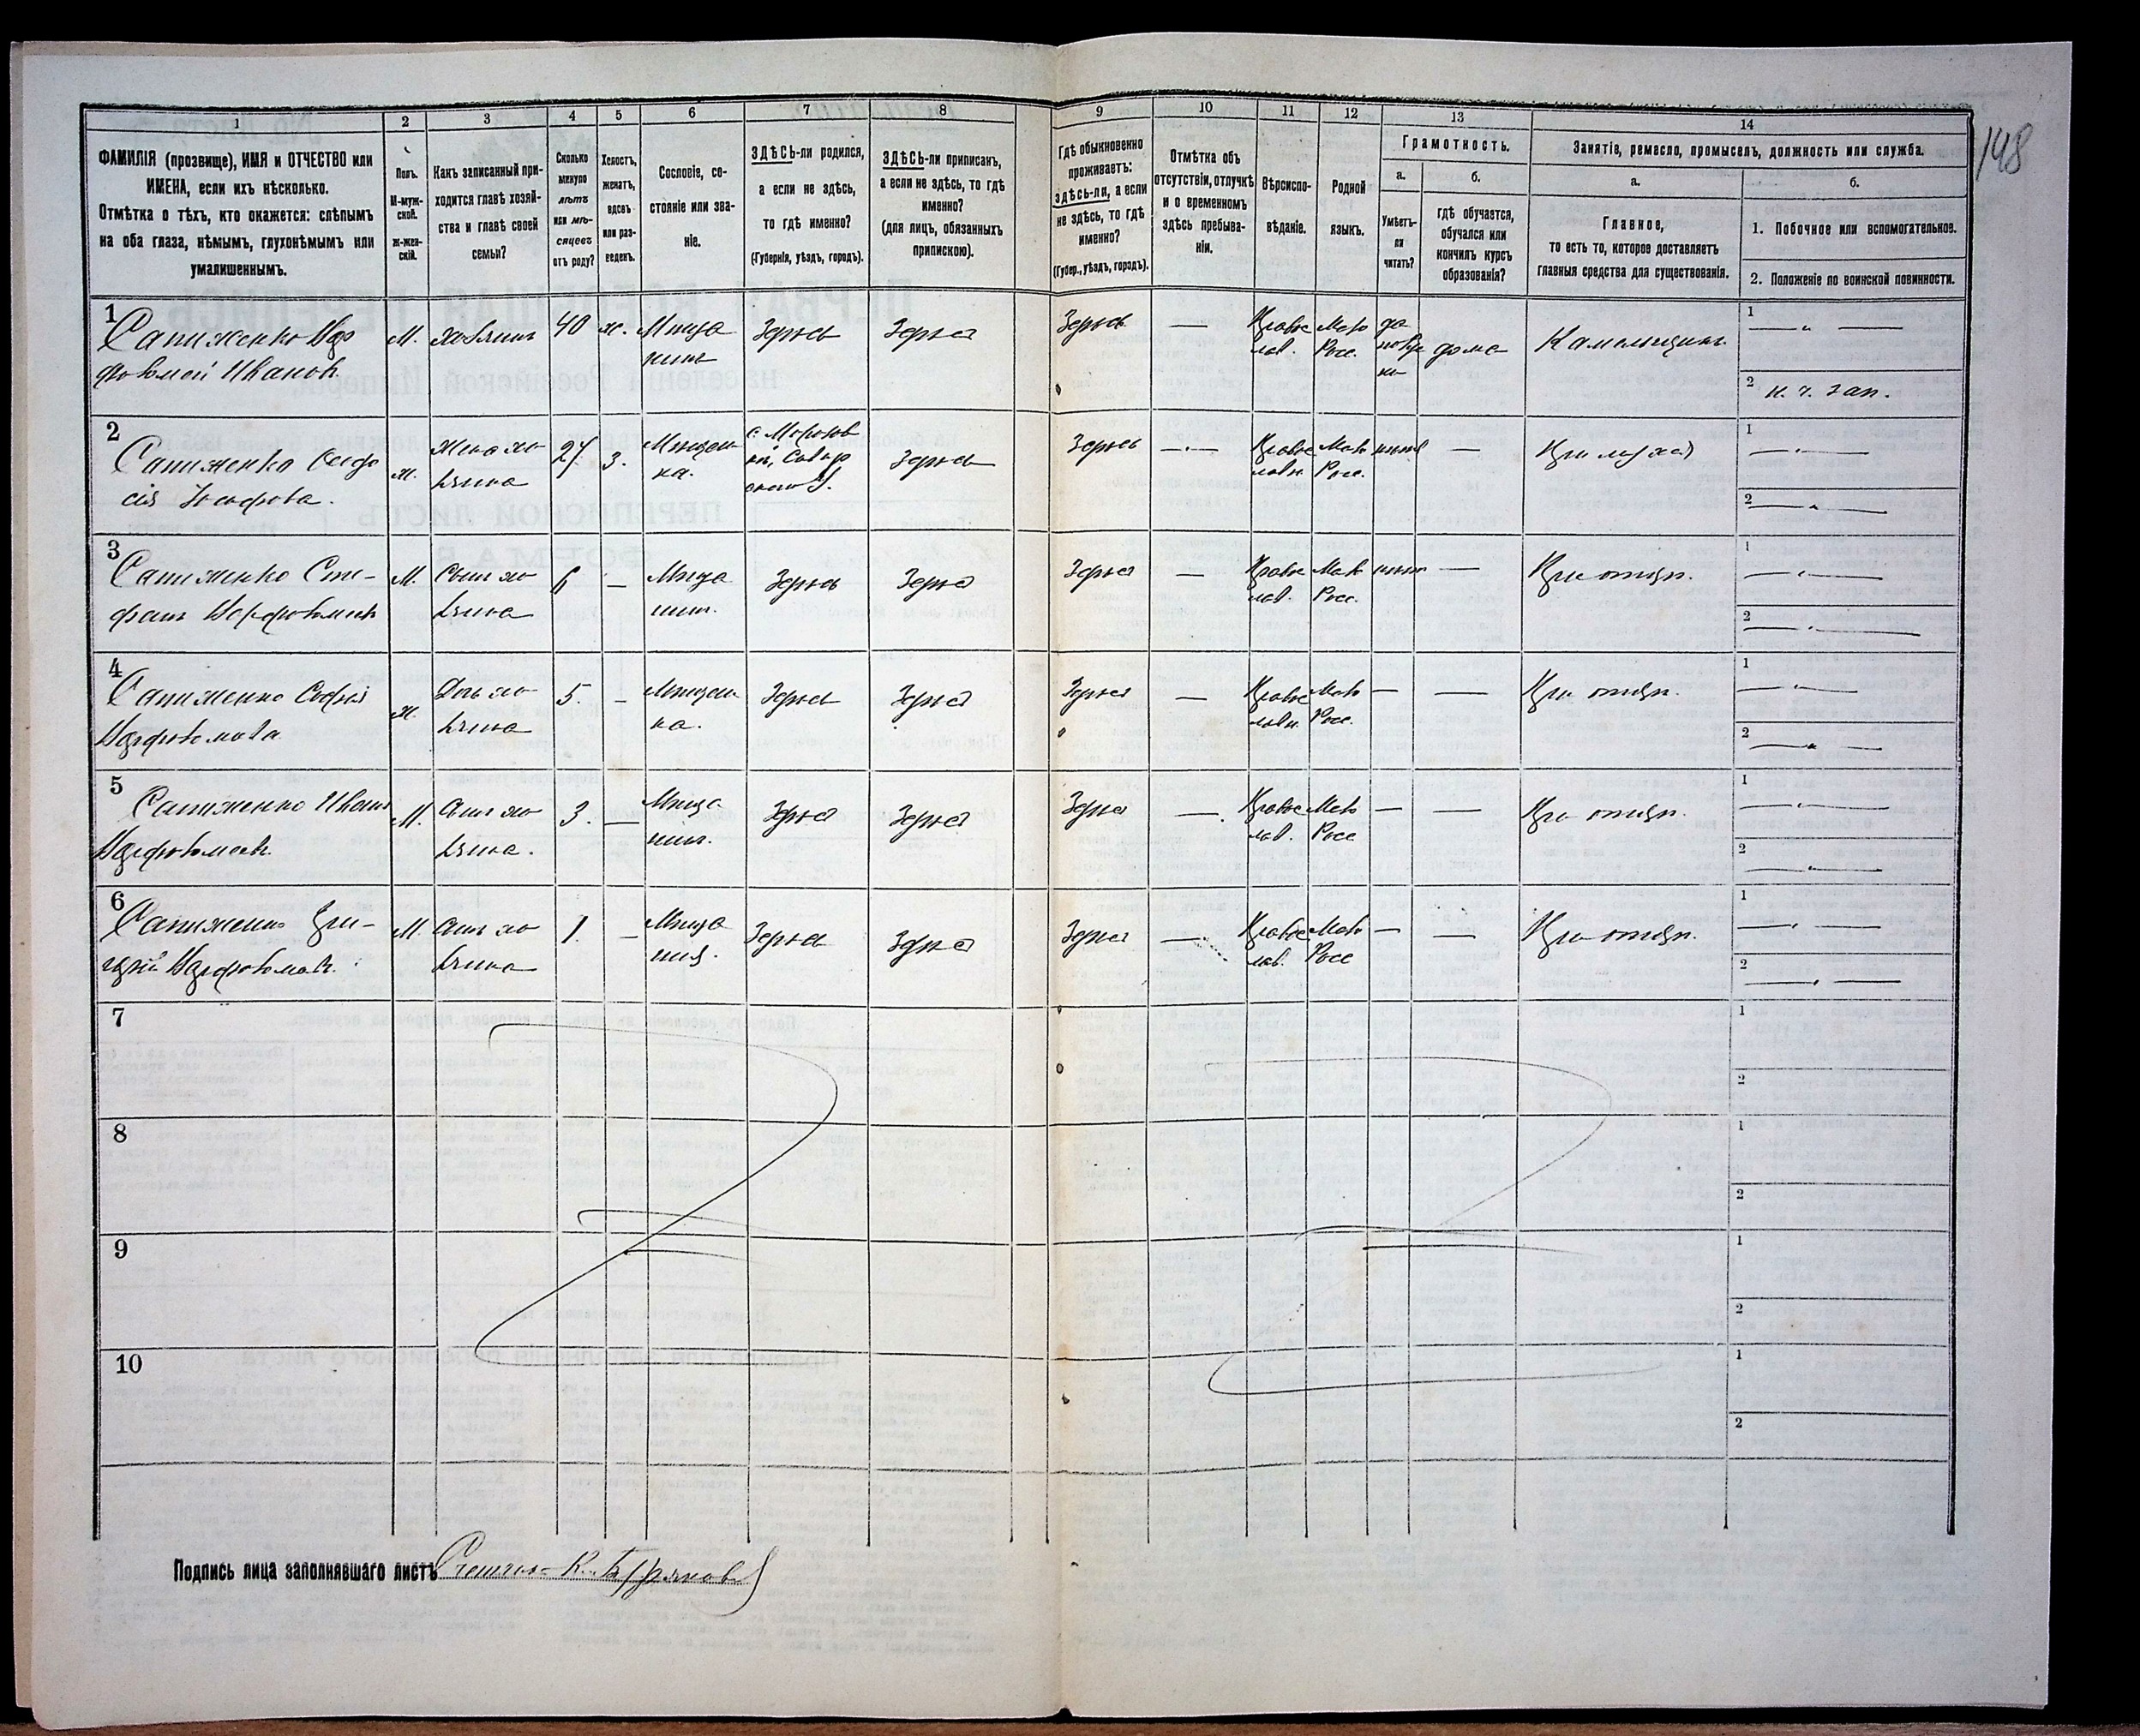 148
1 2 3 4 5 6 7 8 9 10 11 12 13 14
ФАМИЛІЯ (прозвище), ИМЯ и ОТЧЕСТВО или
ИМЕНА, если ихъ нѣсколько.
Отмѣтка о тѣхъ, кто окажется: слѣпымъ
на оба глаза, нѣмымъ, глухонѣмымъ или
умалишеннымъ.
Полъ.
М-муж-
ской.
ж-жен-
скій.
Какъ записанный при-
ходится главѣ хозяй-
ства и главѣ своей
семьи?
Сколько
минуло
лѣтъ
или мѣ-
сяцевъ
отъ роду?
Холостъ,
женатъ,
вдовъ
или раз-
веденъ.
Сословіе, со-
стояніе или зва-
ніе.
ЗДѢСЬ-ли родился,
а если не здѣсь,
то гдѣ именно?
(Губернія, уѣздъ, городъ).
ЗДѢСЬ-ли приписанъ,
а если не здѣсь, то гдѣ
именно?
(для лицъ, обязанныхъ
припискою).
Гдѣ обыкновенно
проживаетъ:
здѣсь-ли, а если
не здѣсь, то гдѣ
именно?
(Губер., уѣздъ, городъ).
Отмѣтка объ
отсутствіи, отлучкѣ
и о временномъ
здѣсь пребыва-
ніи.
Вѣроиспо-
вѣданіе.
Родной
языкъ.
Грамотность.
а.
Умѣетъ-
ли
читать?
б.
гдѣ обучается,
обучался или
кончилъ курсъ
образованія?
Занятіе, ремесло, промыселъ, должность или служба.
а.
Главное,
то есть то, которое доставляетъ
главныя средства для существованія.
б.
1. Побочное или вспомогательное.
2. Положеніе по воинской повинности.
1
Сапиженко
Иванов
М. хозяинъ 40 ж. Мѣща
нинъ
Здѣсь Здѣсь Здѣсь — Православ. Мало Росс. да дома
1 — " —
2 н. ч. зап.
2
Сапиженко
Жена хо
зяина
27 з. Мѣщан
ка.
Здѣсь Здѣсь — Православн Мало Росс. — При мужѣ
1 — " —
2 — " —
3
Сапиженко Сте-
фанъ
М. Сынъ хо
зяина
6 — Мѣща
нинъ.
Здѣсь Здѣсь Здѣсь — Православ. Мало Росс. — При отцѣ.
1 — " —
2 — " —
4
Сапиженко Софія
ж. Дочь хо
зяина
5. — Мѣщан
ка.
Здѣсь Здѣсь Здѣсь — Православн. Мало Росс. — — При отцѣ.
1 — " —
2 — " —
5
Сапиженко Иванъ
М. Сынъ хо
зяина.
3. — Мѣща
нинъ.
Здѣсь Здѣсь Здѣсь — Православ. Мало Росс — — При отцѣ.
1 — " —
2 — " —
6
Сапиженко Гри-
горій
М. Сынъ хо
зяина
1. — Мѣща
нин.
Здѣсь Здѣсь Здѣсь — Православ. Мало Росс — — При отцѣ.
1 — " —
2 — " —
7
1
2
8
1
2
9
1
2
10
1
2
Подпись лица заполнявшаго листъ